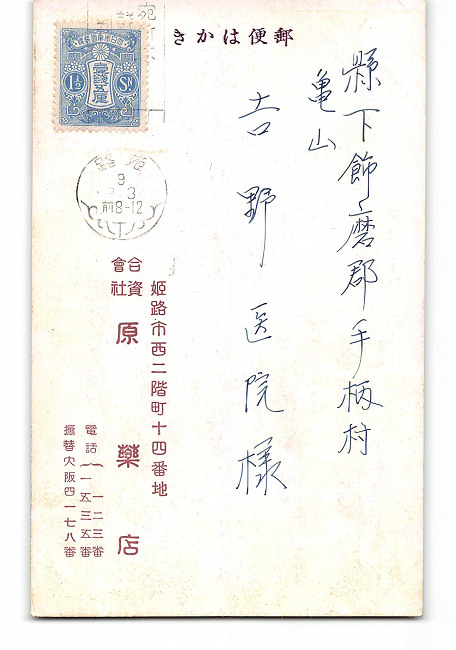 きかは便郵
縣下飾磨郡手柄村
亀山
吉野医院様
壹錢五厘
1½
Sn
姫路
9
9 3
前8-12
姫路市西二階町十四番地
合資
會社
原藥店
電話
一二三番
一五三五番
振替大阪四一七八番